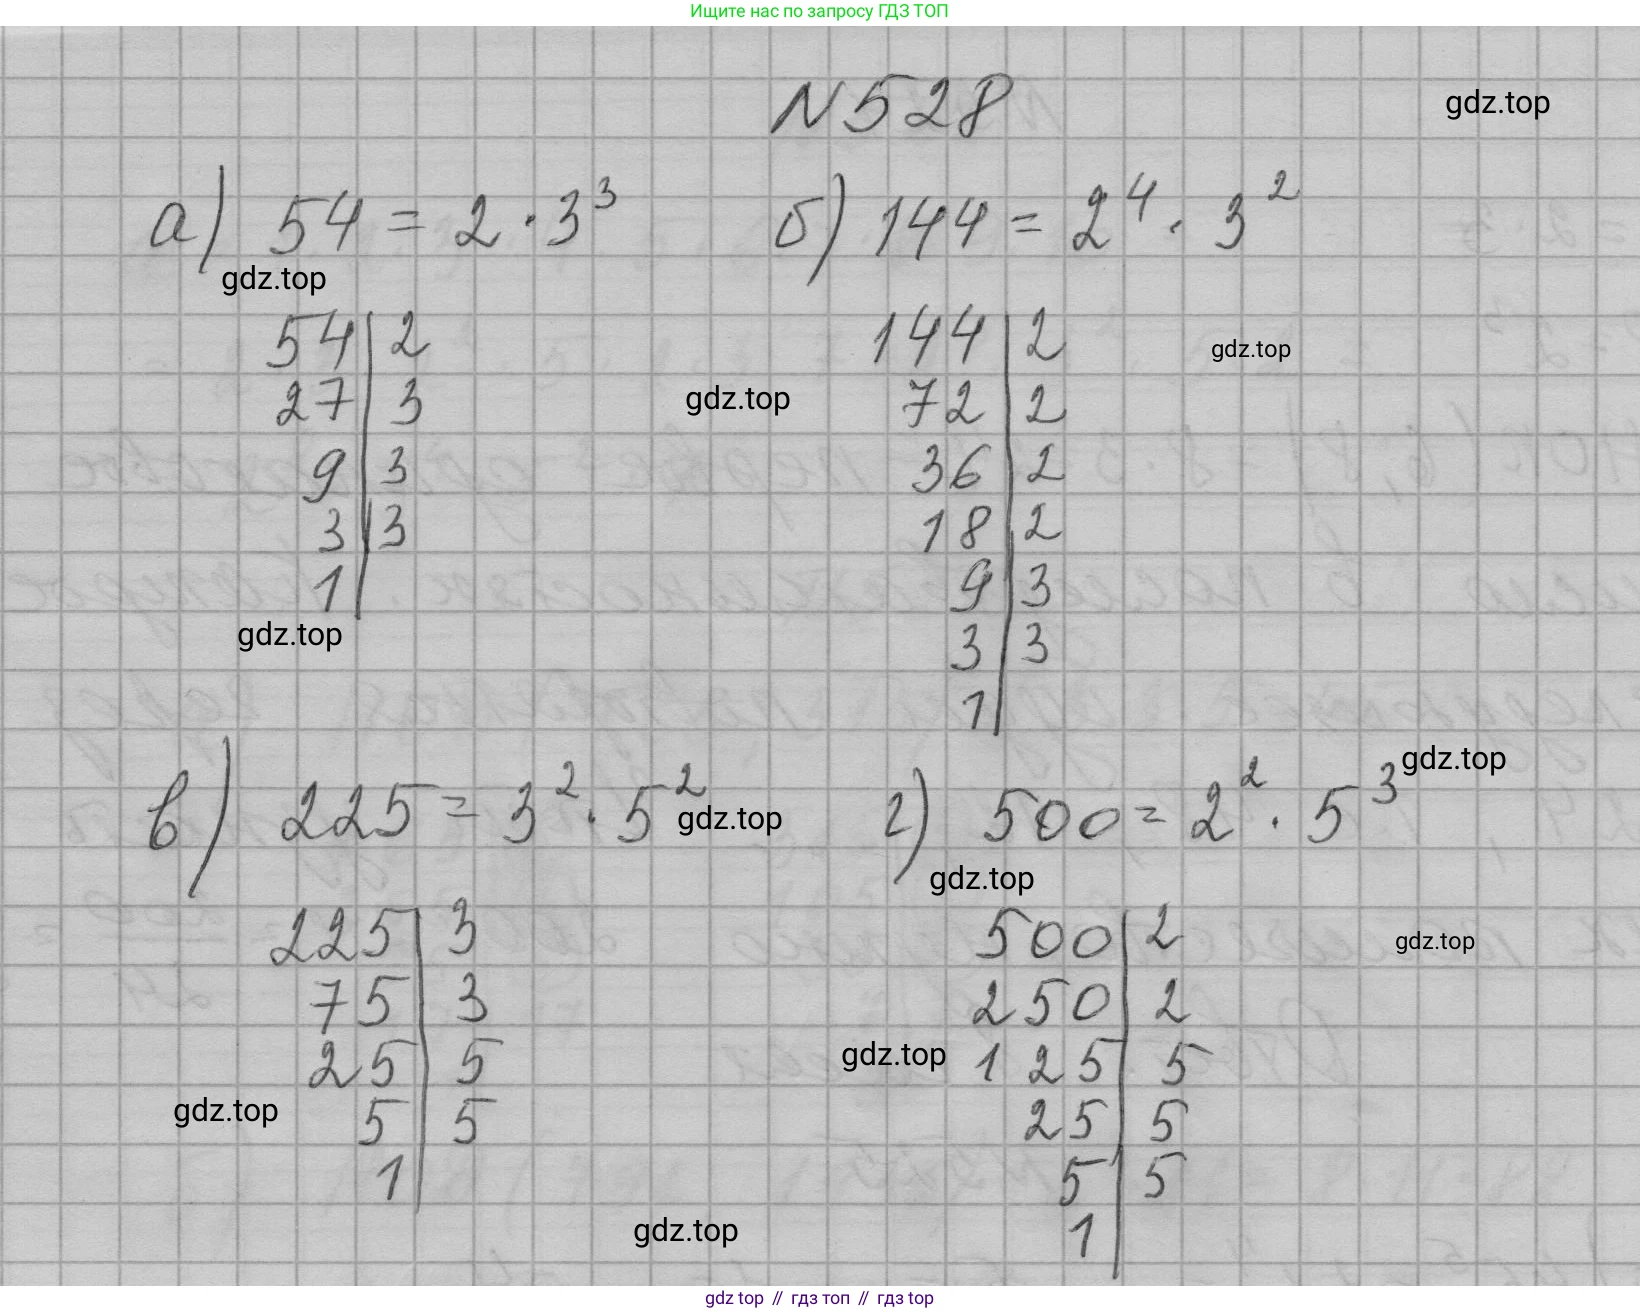 Ищите нас по запросу ГДЗ ТОП
N528
gdz.top
а) 54 = 2 · 3³
б) 144 = 2⁴ · 3²
gdz.top
54 | 2
27 | 3
9 | 3
3 | 3
1 |
gdz.top
gdz.top
144 | 2
72 | 2
36 | 2
18 | 2
9 | 3
3 | 3
1 |
gdz.top
в) 225 = 3² · 5²
gdz.top
г) 500 = 2² · 5³
gdz.top
gdz.top
225 | 3
75 | 3
25 | 5
5 | 5
1 |
gdz.top
500 | 2
250 | 2
125 | 5
25 | 5
5 | 5
1 |
gdz.top
gdz.top
gdz.top
gdz top // гдз топ // гдз top